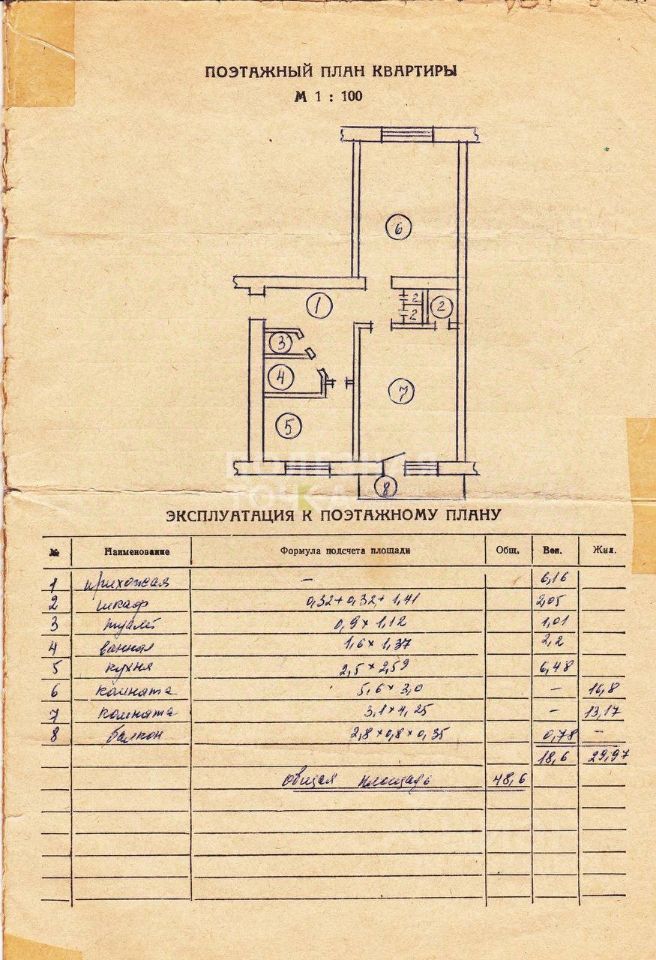 ПОЭТАЖНЫЙ ПЛАН КВАРТИРЫ
М 1 : 100
6
1
2
2
2
3
4
7
5
8
ПОЛЕЗНАЯ
ТОЧКА
ЭКСПЛУАТАЦИЯ К ПОЭТАЖНОМУ ПЛАНУ
№ Наименование Формула подсчета площади Общ. Всп. Жил.
1 прихожая — 6,16
2 шкаф 0,32+0,32+1,41 2,05
3 туалет 0,9×1,12 1,01
4 ванная 1,6×1,37 2,2
5 кухня 2,5×2,59 6,48
6 комната 5,6×3,0 — 16,8
7 комната 3,1×4,25 — 13,17
8 балкон 2,8×0,8×0,35 0,78 —
18,6 29,97
общая площадь 48,6